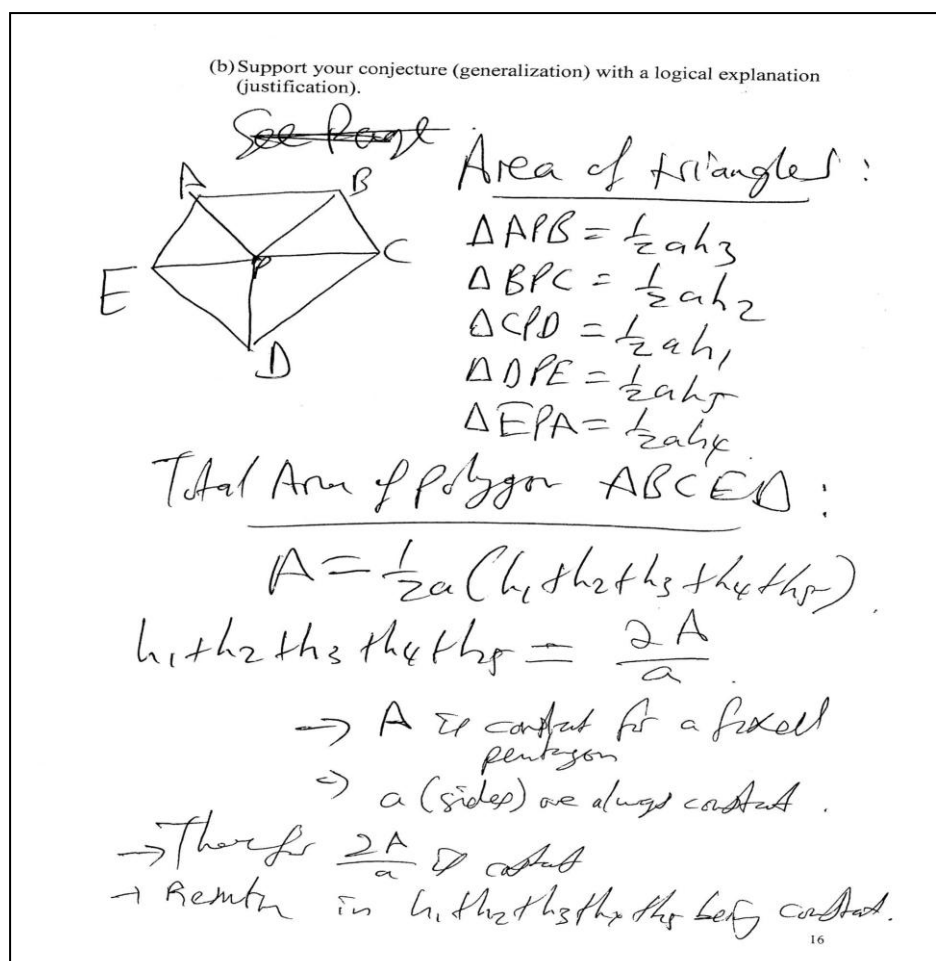 (b) Support your conjecture (generalization) with a logical explanation
(justification).
See Page
Area of triangles:
A
B
C
D
E
P
ΔAPB = ½ah₃
ΔBPC = ½ah₂
ΔCPD = ½ah₁
ΔDPE = ½ah₅
ΔEPA = ½ah₄
Total Area of polygon ABCED:
A = ½a(h₁+h₂+h₃+h₄+h₅).
h₁+h₂+h₃+h₄+h₅ = 2A/a.
→ A is constant for a fixed
pentagon
⇒ a (sides) are always constant.
→ Therefor 2A/a is constant
→ in h₁+h₂+h₃+h₄+h₅ being constant.
16